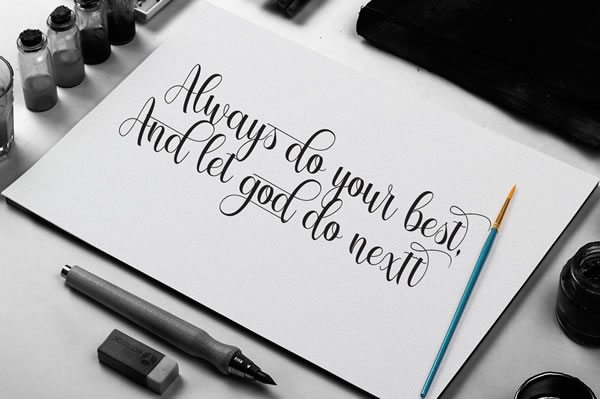 Always do your best,
And let god do nextt